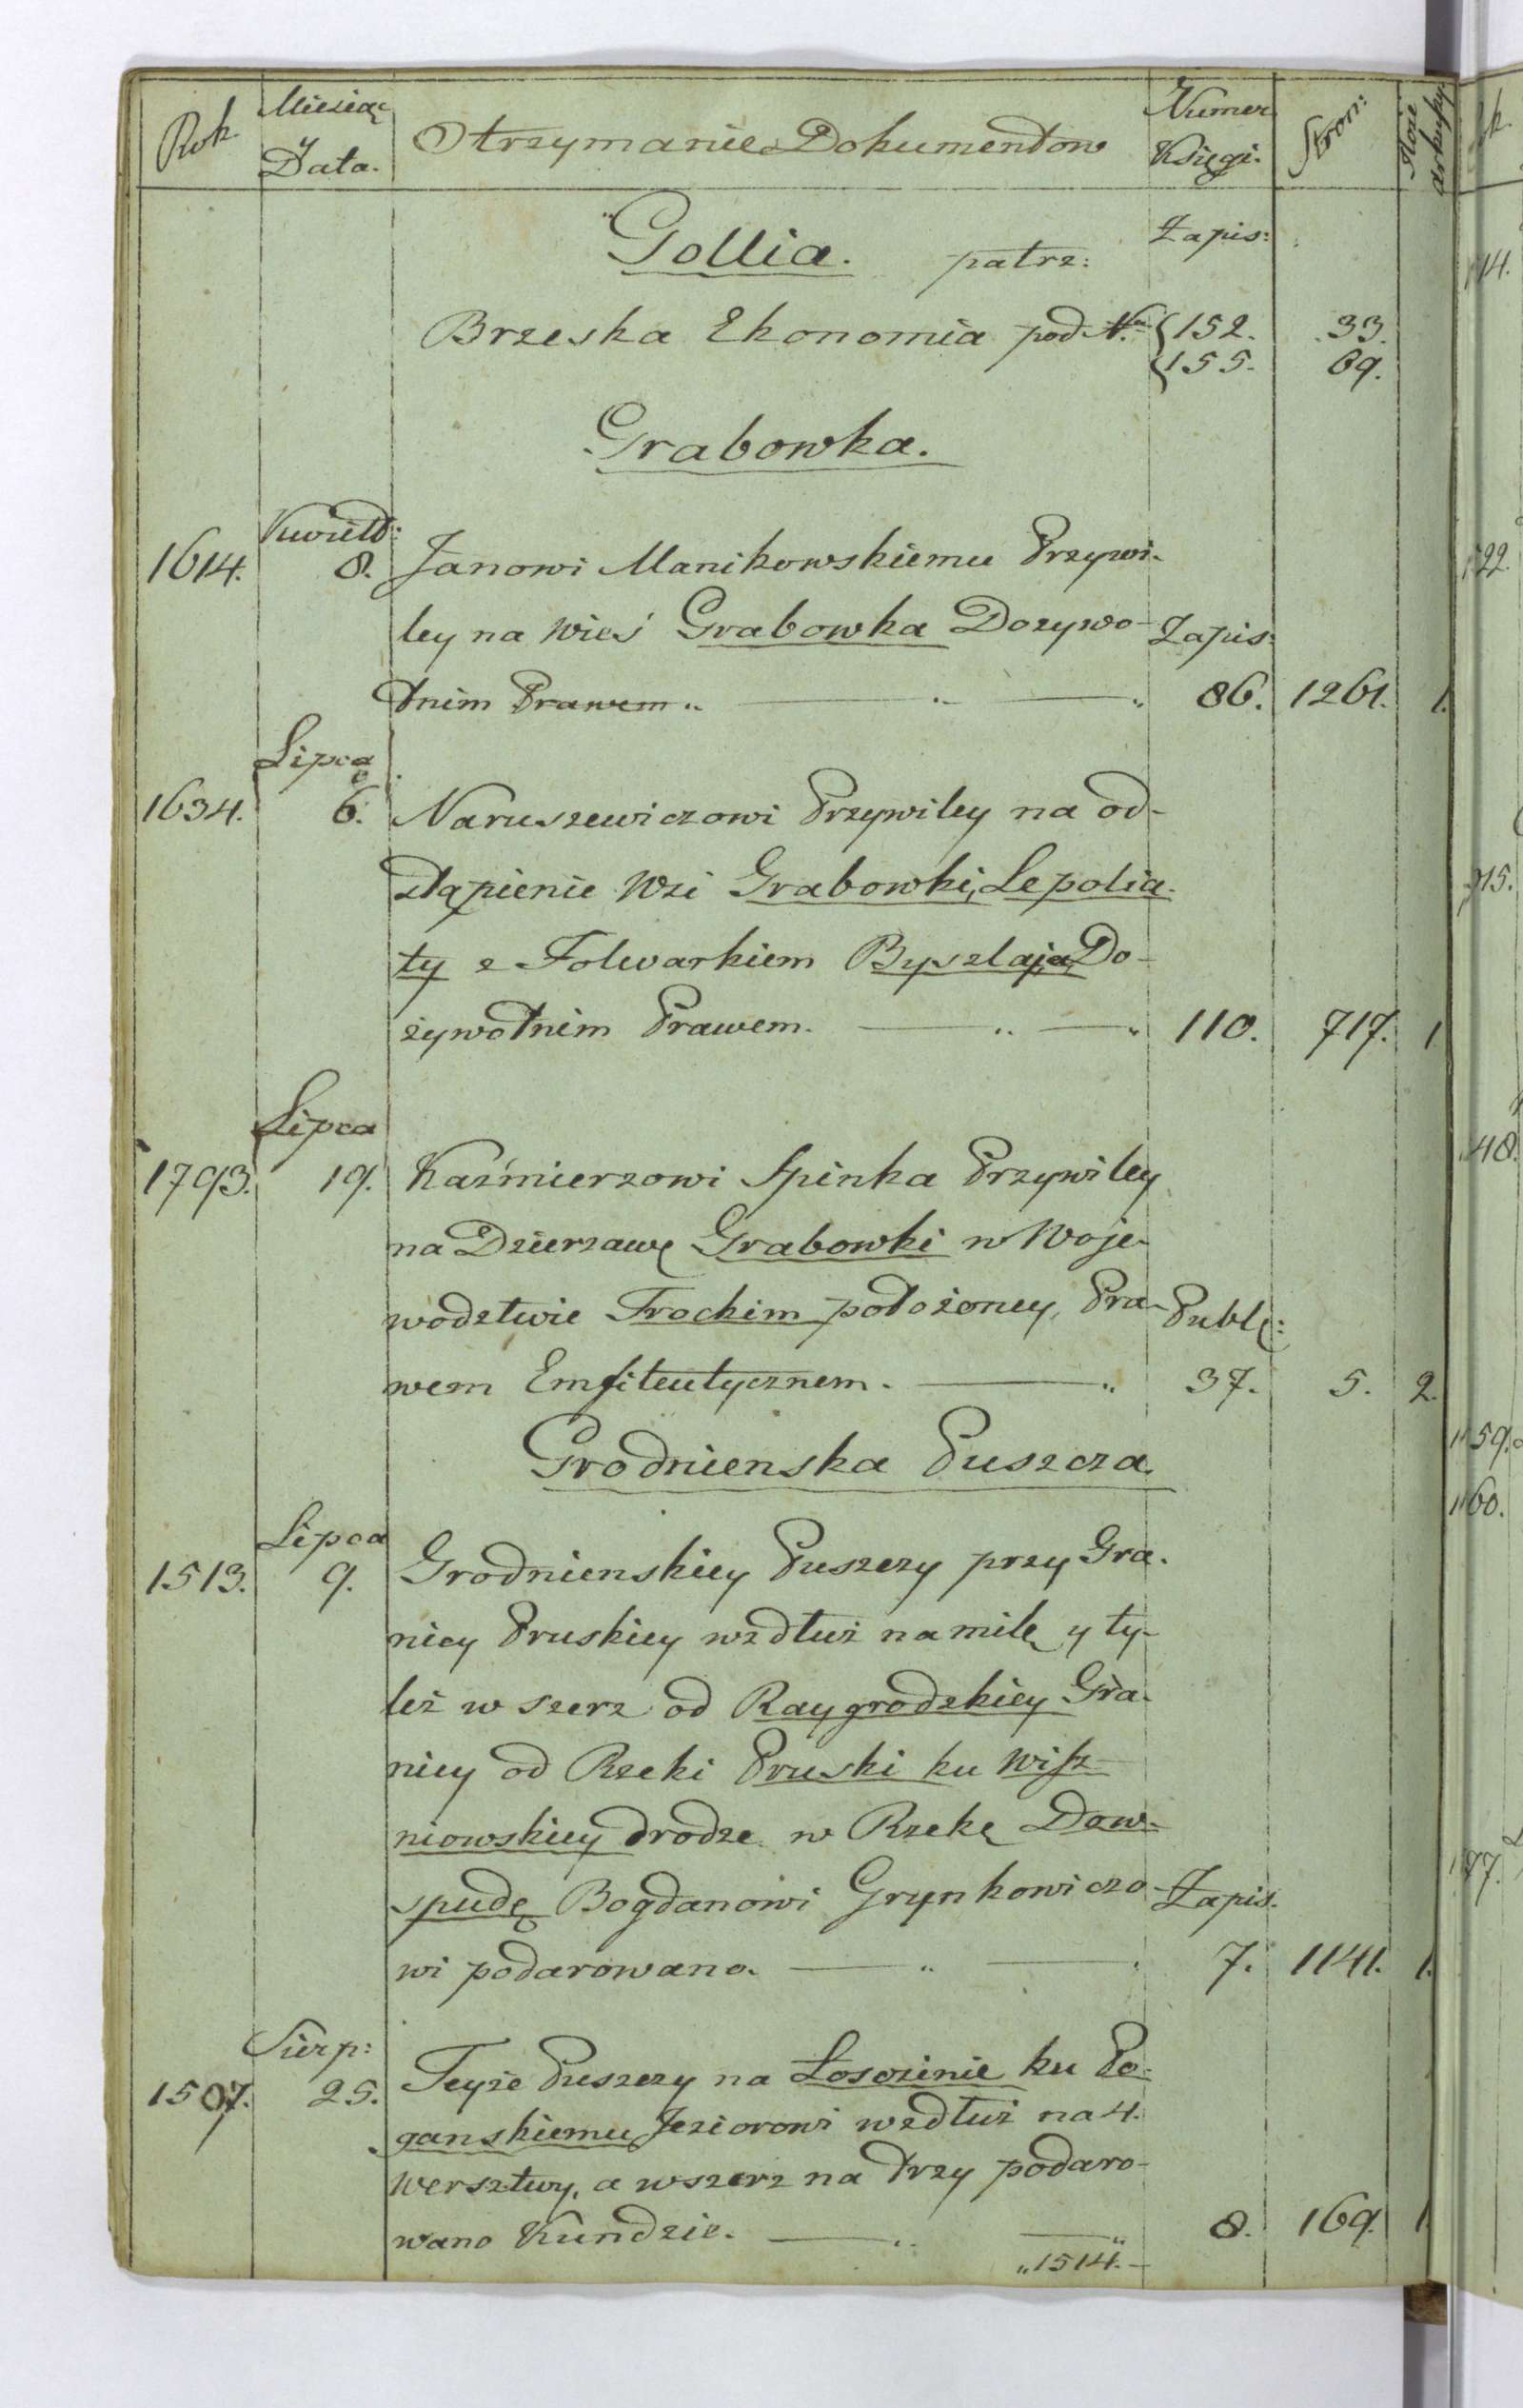 Rok Miesiąc Otrzymanie Dokumentow Numer Stron: Ilosc
Y Data. Księgi. arkuszy
Gollia. patrz: Zapis:
Brzeska Ekonomia pod N. 152. 33.
155. 69.
Grabowka.
Kwiet:
1614. 8. Janowi Manikowskiemu Przywi-
ley na Wieś Grabowka Dozywo- Zapis:
tnim Prawem.. 86. 1261. 1.
Lipca
1634. 6. Naruszewiczowi Przywiley na od-
stąpienie Wsi Grabowki, Lepolia-
ty z Folwarkiem Byszlaja Do-
żywotnim Prawem. 110. 717. 1
Lipca
1793. 19. Kaźmierzowi Spinka Przywiley
na Dzierzawę Grabowki w Woje-
wodztwie Trockim położoney, Pra- Publ:
wem Emfiteutycznem. 37. 5. 2.
Grodnienska Puszcza.
Lipca
1513. 9. Grodnienskiey Puszczy przy Gra-
nicy Pruskiey wzdłuż na milę y ty-
leż w szerz od Raygrodzkiey Gra-
nicy od Rzeki Pruski ku Wisz-
niowskiey drodze w Rzekę Dow-
spudę Bogdanowi Grynkowiczo- Zapis.
wi podarowano. 7. 1141. 1.
Sierp:
1507. 25. Teyże Puszczy na Łososinie ku Po-
ganskiemu Jeziorowi wzdłuż na 4.
Wersztwy, a wszerz na trzy podaro-
wano Kundzie. 8. 169. 1.
„1514.-